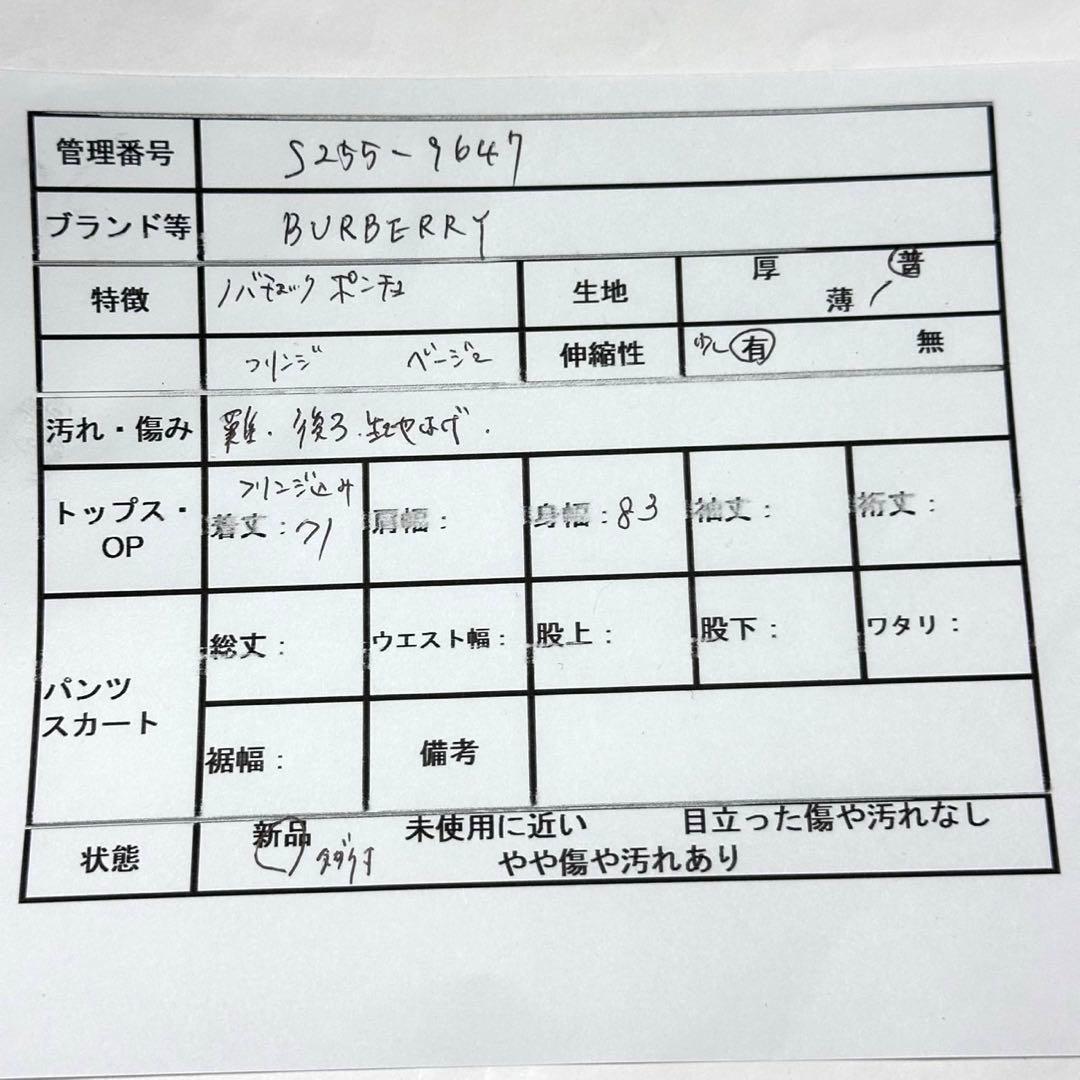 管理番号 S255-9647
ブランド等 BURBERRY
特徴 ノバチェック ポンチョ 生地 厚 普 薄
フリンジ ベージュ 伸縮性 少し 有 無
汚れ・傷み 難. 後ろ.生地はげ.
トップス・OP フリンジ込み
着丈:71 肩幅: 身幅:83 袖丈: 裄丈:
パンツ
スカート
総丈: ウエスト幅: 股上: 股下: ワタリ:
裾幅: 備考
状態 新品 未使用に近い 目立った傷や汚れなし
タグ付 やや傷や汚れあり